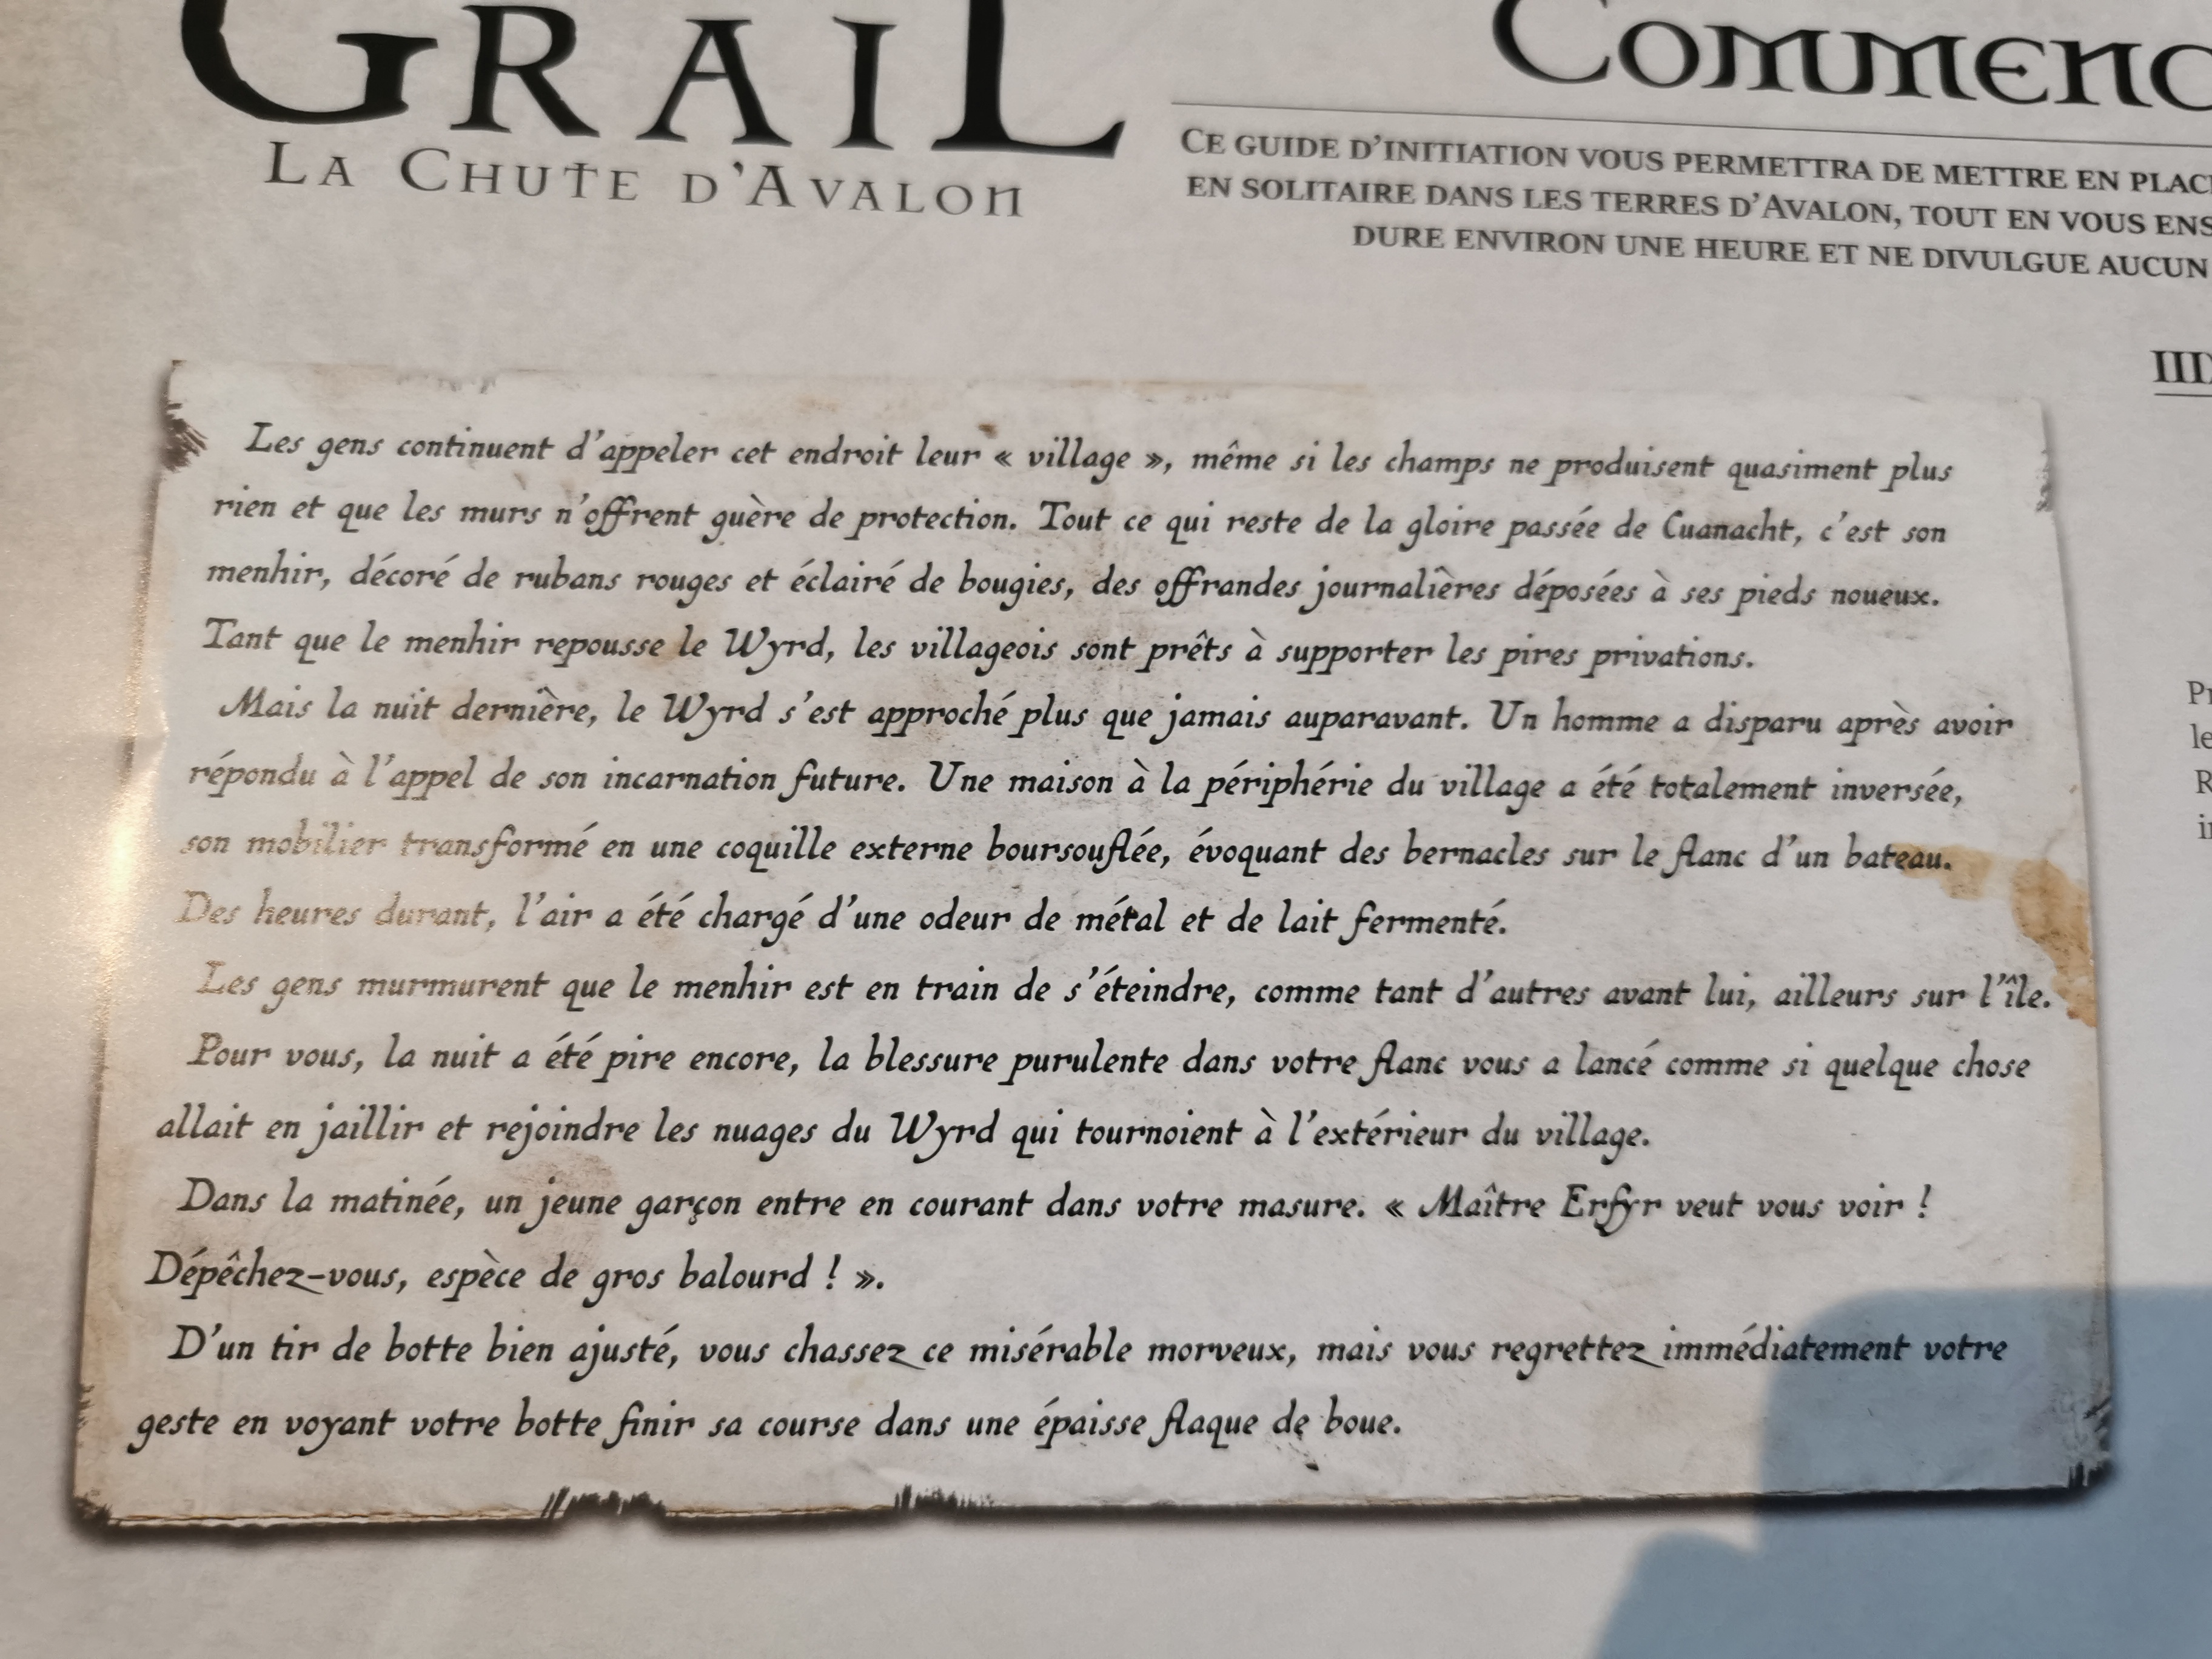 GRAIL
LA CHUTE D'AVALON
CE GUIDE D'INITIATION VOUS PERMETTRA DE METTRE EN
EN SOLITAIRE DANS LES TERRES D'AVALON, TOUT EN VOUS
DURE ENVIRON UNE HEURE ET NE DIVULGUE AUCUN
Les gens continuent d'appeler cet endroit leur « village », même si les champs ne produisent quasiment plus
rien et que les murs n'offrent guère de protection. Tout ce qui reste de la gloire passée de Cuanacht, c'est son
menhir, décoré de rubans rouges et éclairé de bougies, des offrandes journalières déposées à ses pieds noueux.
Tant que le menhir repousse le Wyrd, les villageois sont prêts à supporter les pires privations.
Mais la nuit dernière, le Wyrd s'est approché plus que jamais auparavant. Un homme a disparu après avoir
répondu à l'appel de son incarnation future. Une maison à la périphérie du village a été totalement inversée,
son mobilier transformé en une coquille externe boursouflée, évoquant des bernacles sur le flanc d'un bateau.
Des heures durant, l'air a été chargé d'une odeur de métal et de lait fermenté.
Les gens murmurent que le menhir est en train de s'éteindre, comme tant d'autres avant lui, ailleurs sur l'île.
Pour vous, la nuit a été pire encore, la blessure purulente dans votre flanc vous a lancé comme si quelque chose
allait en jaillir et rejoindre les nuages du Wyrd qui tournoient à l'extérieur du village.
Dans la matinée, un jeune garçon entre en courant dans votre masure. « Maître Erfyr veut vous voir !
Dépêchez-vous, espèce de gros balourd ! ».
D'un tir de botte bien ajusté, vous chassez ce misérable morveux, mais vous regrettez immédiatement votre
geste en voyant votre botte finir sa course dans une épaisse flaque de boue.